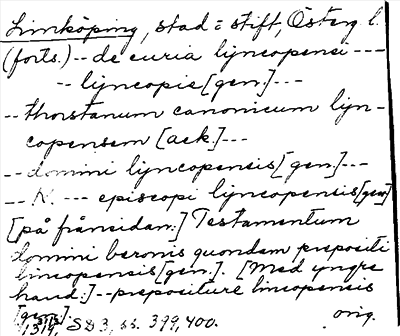 Linköping, stad = stift, Österg l.
(forts.) -- de curia lyncopensi ---
-- lyncopie [gen.] ---
-- thorstanum canonicum lyn-
copensem [ack.] ---
-- domini lyncopensis [gen.] ---
-- N. --- episcopi lyncopensis [gen]
[på frånsidan:] Testamentum
domini beronis quondam prepositi
lincopensis [gen.]. [Med yngre
hand:] -- prepositure lincopensis
[gen.] orig.
1319, SD 3, ss. 399, 400.